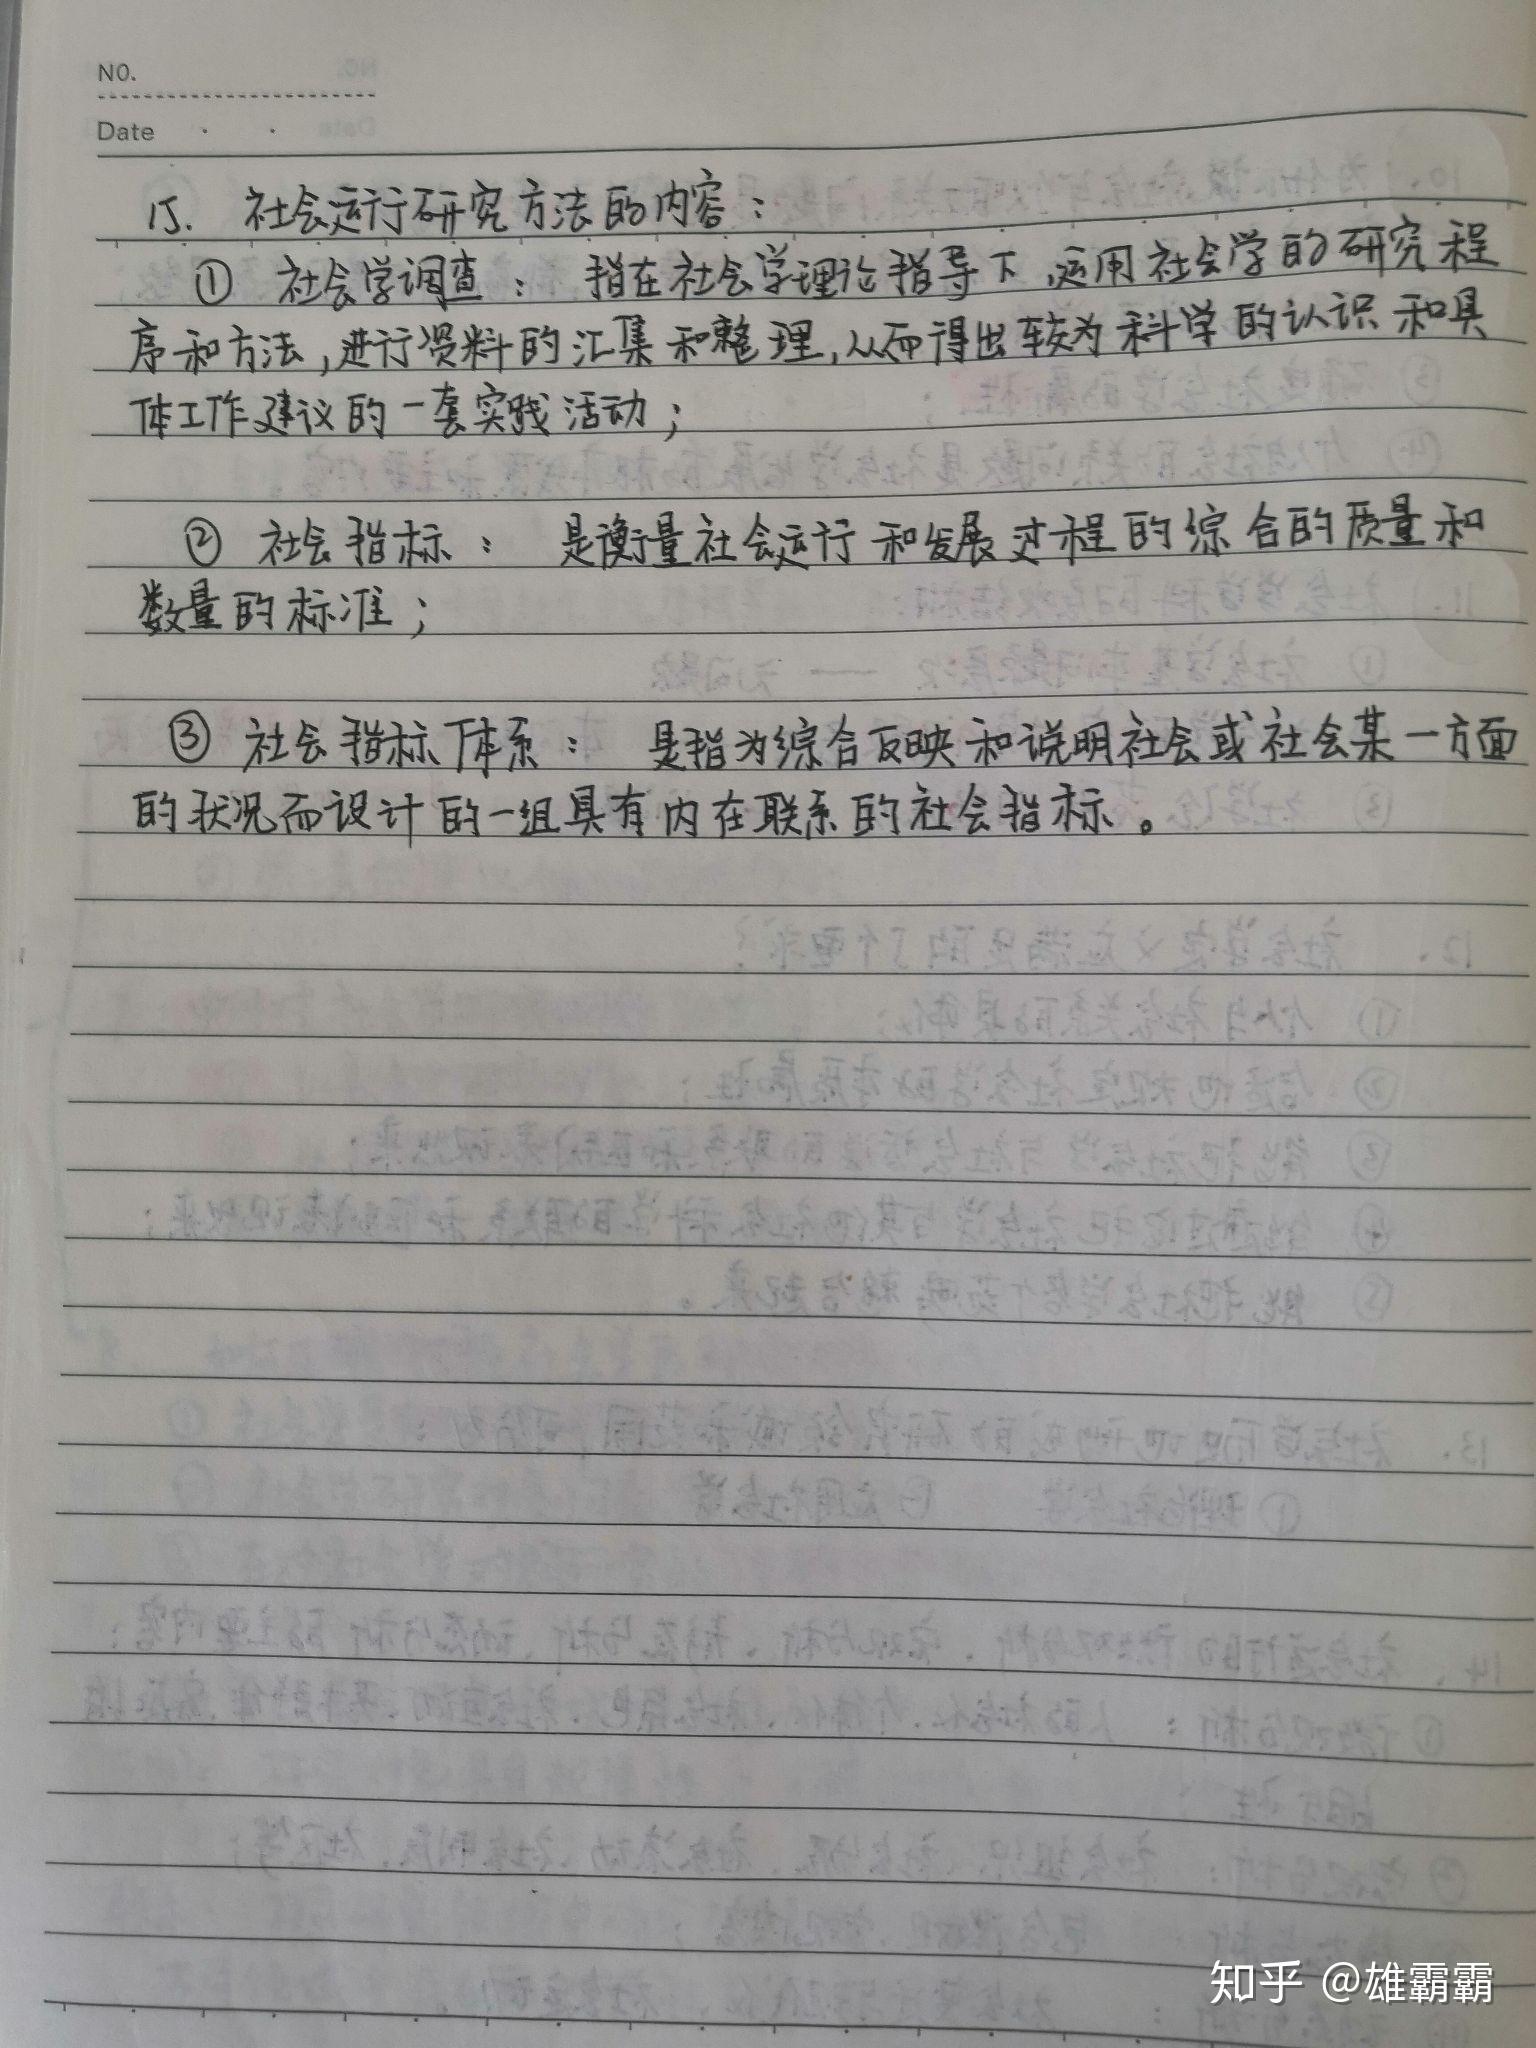 NO.
Date
15. 社会运行研究方法的内容：
① 社会学调查： 指在社会学理论指导下,运用社会学的研究程
序和方法,进行资料的汇集和整理,从而得出较为科学的认识和具
体工作建议的一套实践活动；
② 社会指标： 是衡量社会运行和发展过程的综合的质量和
数量的标准；
③ 社会指标体系： 是指为综合反映和说明社会或社会某一方面
的状况而设计的一组具有内在联系的社会指标。
知乎 @雄霸霸